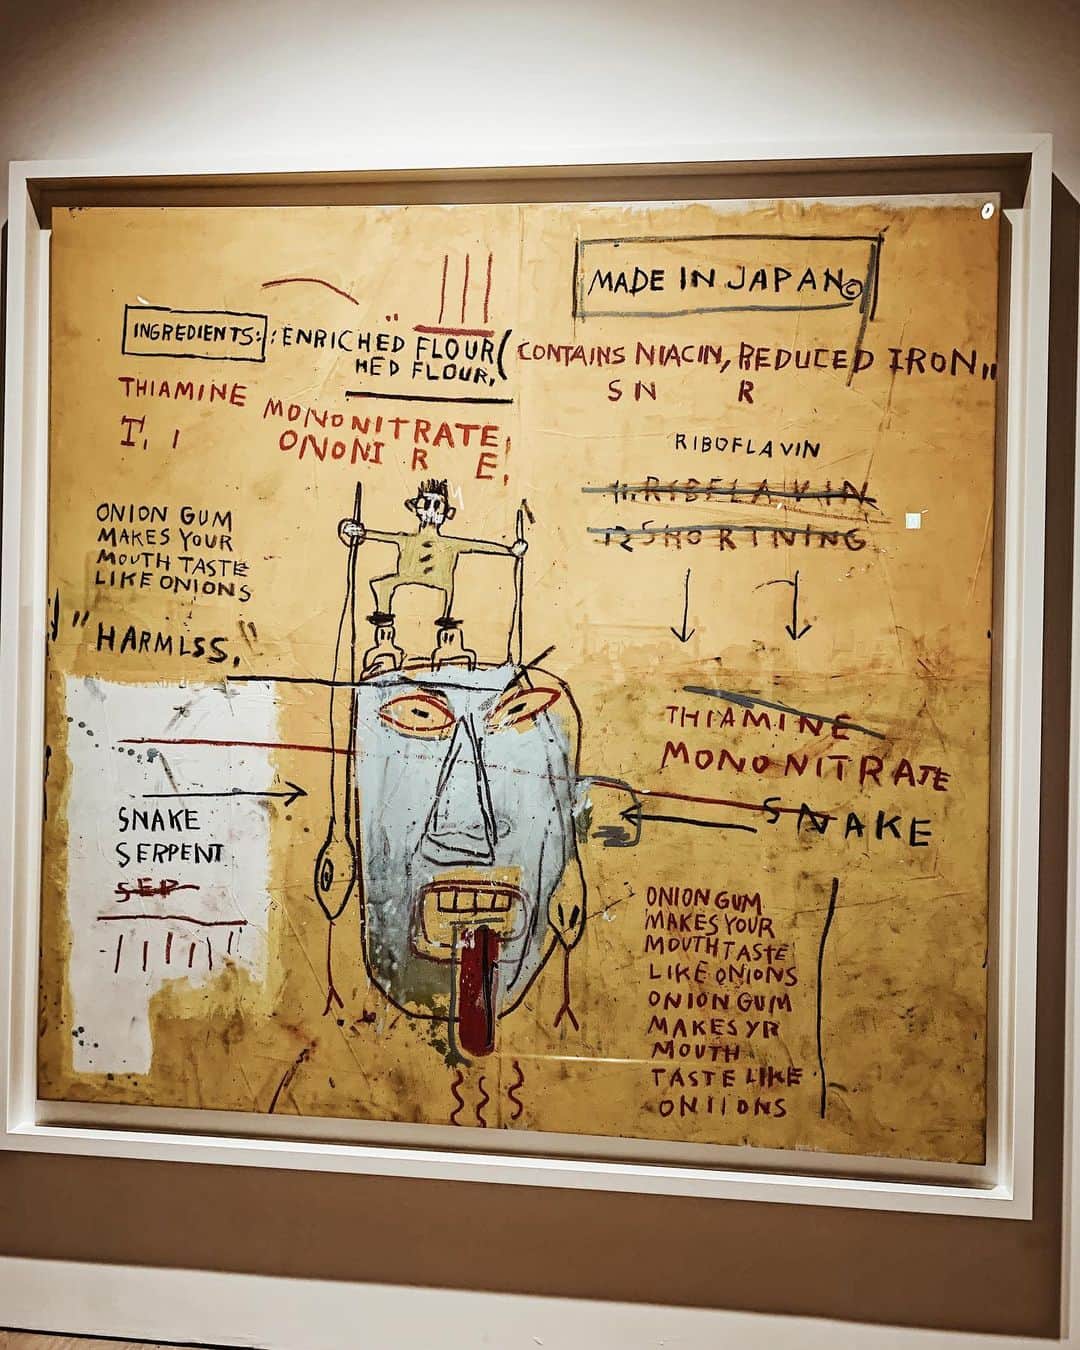 MADE IN JAPAN©
INGREDIENTS: : ENRICHED FLOUR (CONTAINS NIACIN, REDUCED IRON,,
HED FLOUR,
S N R
THIAMINE MONONITRATE,
T. I ONONI R E,
RIBOFLAVIN
11. RIBFLAVIN
12 SHORTNING
ONION GUM
MAKES YOUR
MOUTH TASTE
LIKE ONIONS
"HARMLSS,"
THIAMINE
MONONITRATE
SNAKE
SNAKE
SERPENT
SEP
ONION GUM
MAKES YOUR
MOUTH TASTE
LIKE ONIONS
ONION GUM
MAKES YR
MOUTH
TASTE LIKE
ONIIONS